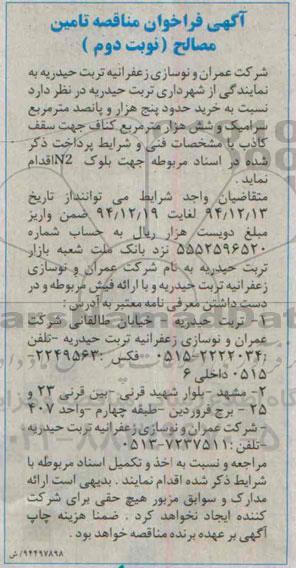 آگهی فراخوان مناقصه تامین
مصالح ( نوبت دوم )
شرکت عمران و نوسازی زعفرانیه تربت حیدریه به
نمایندگی از شهرداری تربت حیدریه در نظر دارد
نسبت به خرید حدود پنج هزار و پانصد مترمربع
سرامیک و شش هزار مترمربع کناف جهت سقف
کاذب با مشخصات فنی و شرایط پرداخت ذکر
شده در اسناد مربوطه جهت بلوک N2اقدام
نماید .
متقاضیان واجد شرایط می تواننداز تاریخ
۹۴/۱۲/۱۳ لغایت ۹۴/۱۲/۱۹ ضمن واریز
مبلغ دویست هزار ریال به حساب شماره
۵۵۵۲۵۹۶۵۲۰ نزد بانک ملت شعبه بازار
تربت حیدریه به نام شرکت عمران و نوسازی
زعفرانیه تربت حیدریه و با ارائه فیش مربوطه و در
دست داشتن معرفی نامه معتبر به آدرس :
۱- تربت حیدریه - خیابان طالقانی شرکت
عمران و نوسازی زعفرانیه تربت حیدریه -تلفن
:۲۲۲۲۰۳۴-۰۵۱۵ فکس :۲۲۴۹۵۶۳-
۰۵۱۵ داخلی ۶
۲- مشهد -بلوار شهید قرنی -بین قرنی ۲۳ و
۲۵ - برج فروردین -طبقه چهارم -واحد ۴۰۷
- شرکت عمران و نوسازی زعفرانیه تربت حیدریه
-تلفن :۷۲۳۷۵۱۱-۰۵۱۳
مراجعه و نسبت به اخذ و تکمیل اسناد مربوطه با
شرایط ذکر شده اقدام نمایند . بدیهی است ارائه
مدارک و سوابق مزبور هیچ حقی برای شرکت
کننده ایجاد نخواهد کرد . ضمنا هزینه چاپ
آگهی بر عهده برنده مناقصه خواهد بود .
۹۴۴۹۷۸۹۸/ش